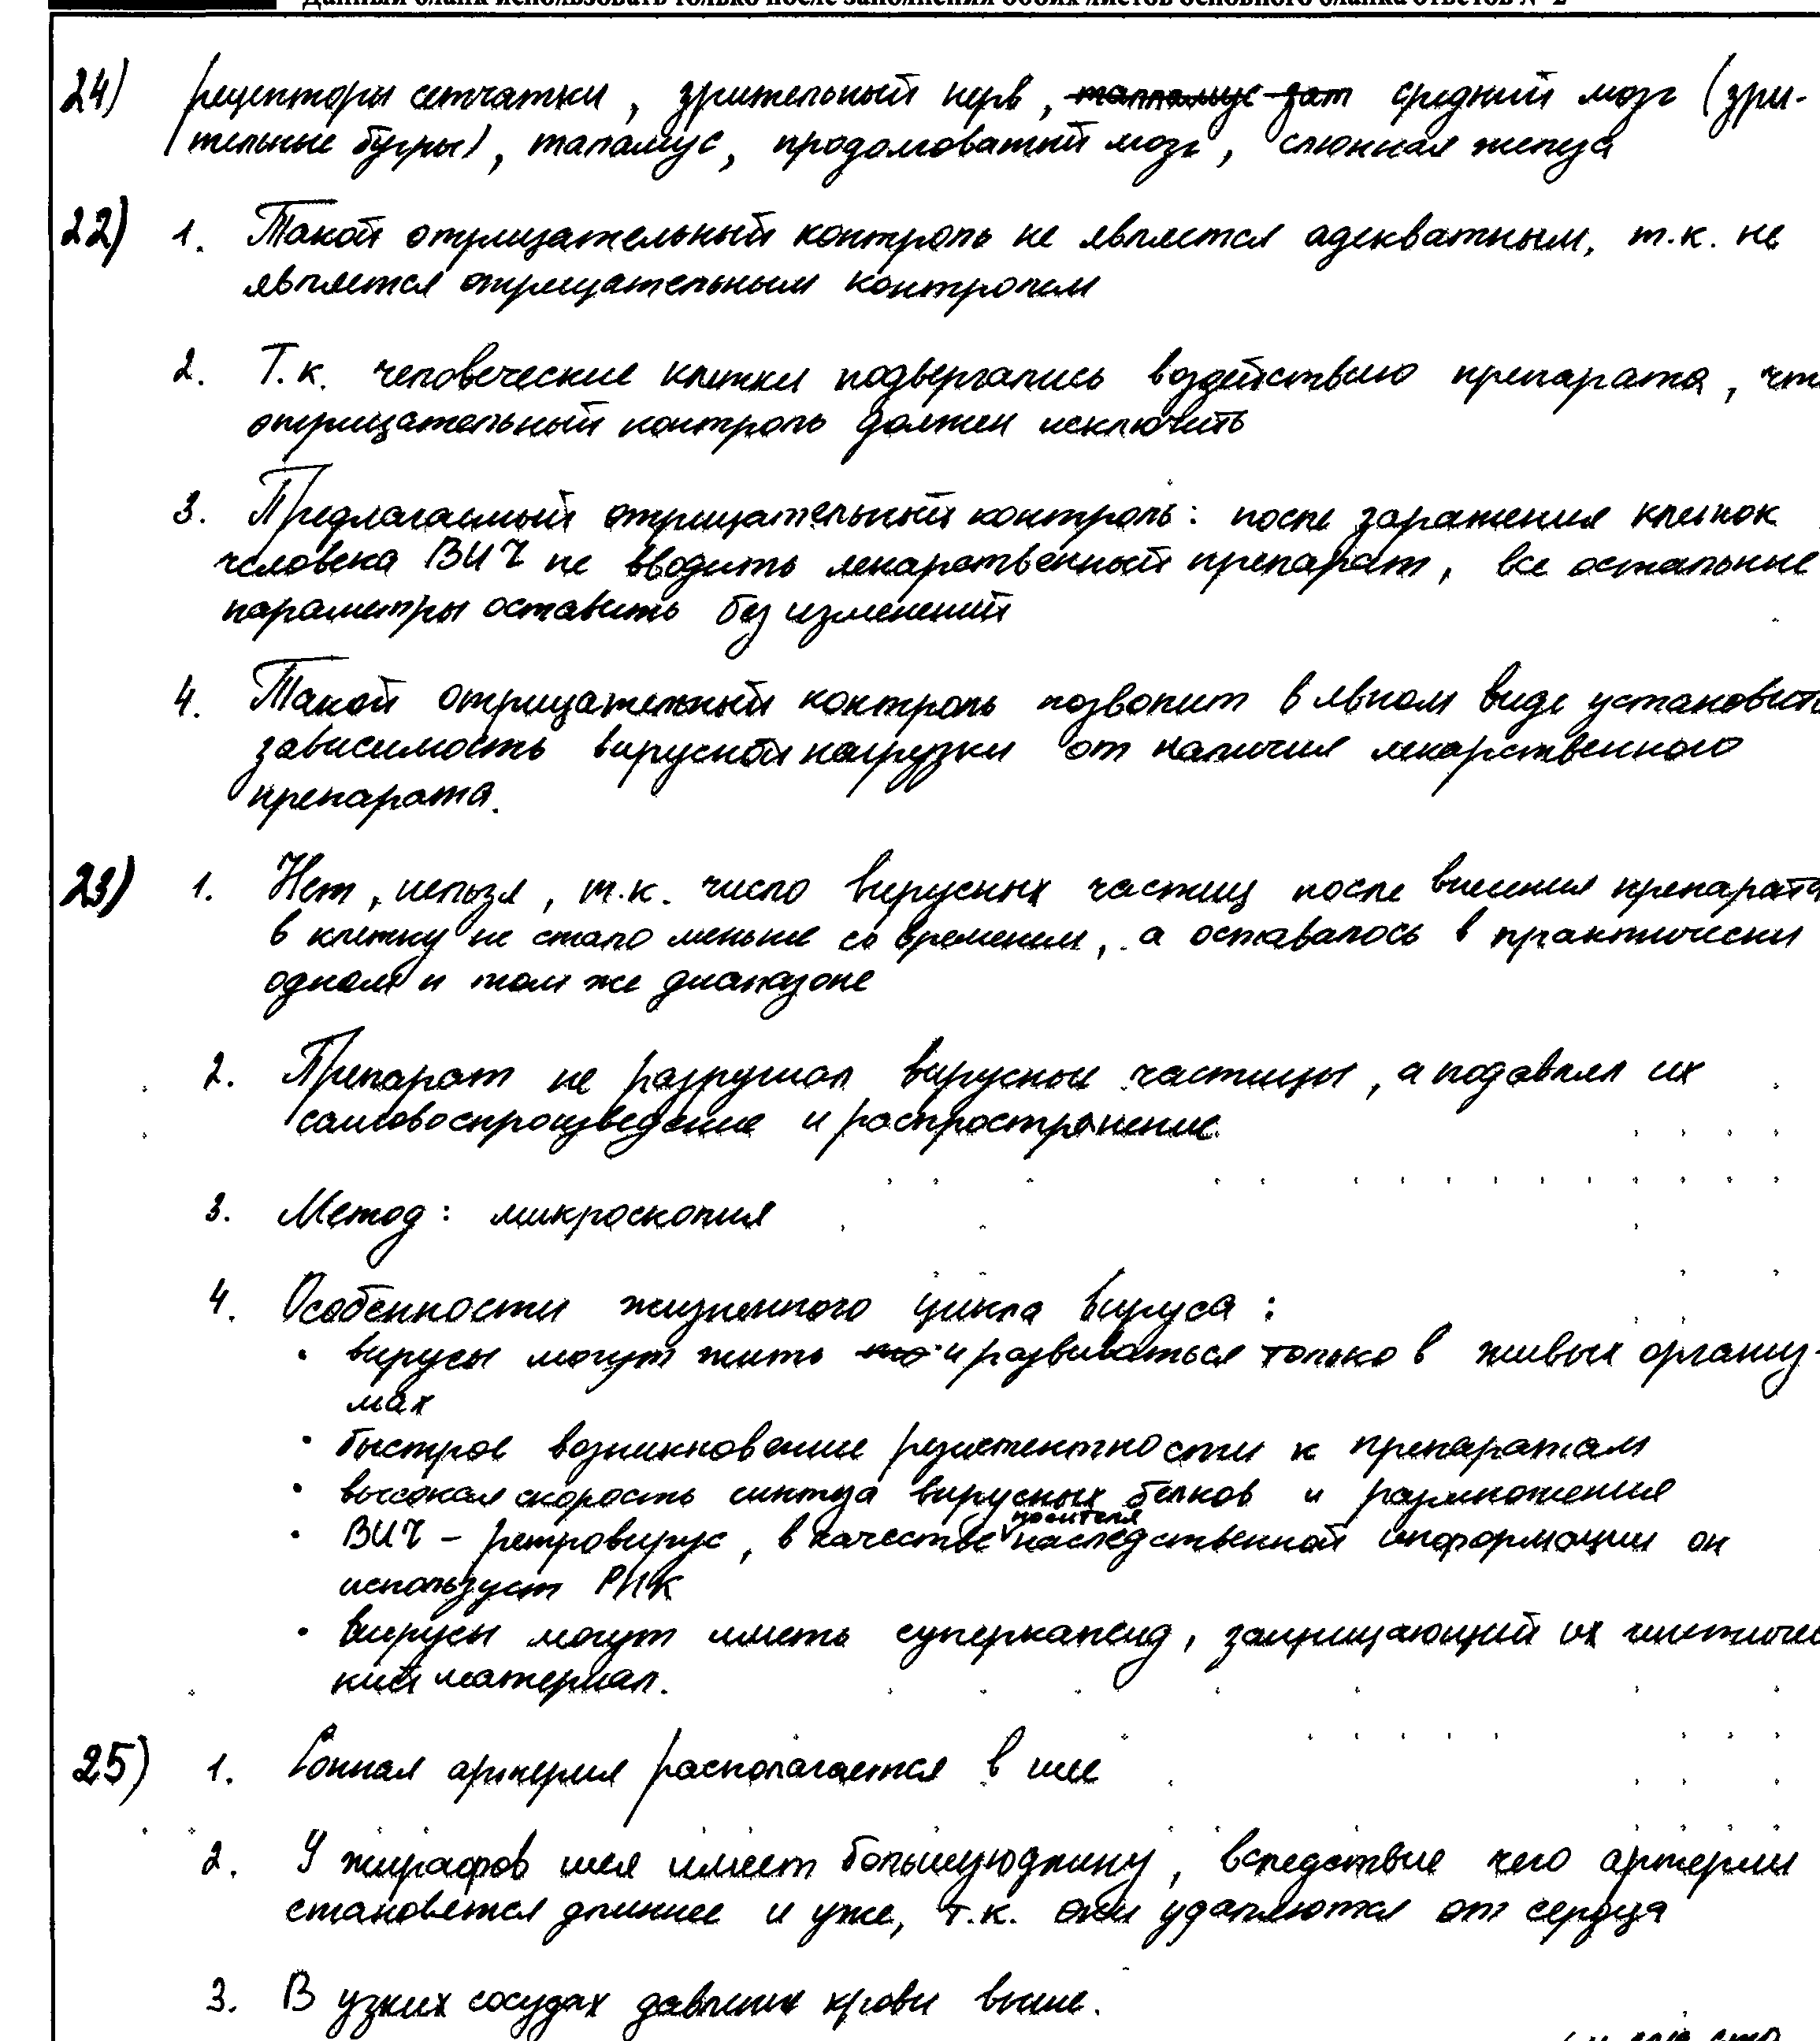 Данный бланк использовать только после заполнения обоих листов основного бланка ответов № 2
24) рецепторы сетчатки, зрительный нерв, таламус зат средний мозг (зри-
тельные бугры), таламус, продолговатый мозг, слюнная железа
22) 1. Такой отрицательный контроль не является адекватным, т.к. не
является отрицательным контролем
2. Т.к. человеческие клетки подвергались воздействию препарата, что
отрицательный контроль должен исключить
3. Предлагаемый отрицательный контроль: после заражения клеток
человека ВИЧ не вводить лекарственный препарат, все остальные
параметры оставить без изменений
4. Такой отрицательный контроль позволит в явном виде установить
зависимость вирусной нагрузки от наличия лекарственного
препарата.
23) 1. Нет, нельзя, т.к. число вирусных частиц после внесения препарата
в клетку не стало меньше со временем, а оставалось в практически
одном и том же диапазоне
2. Препарат не разрушал вирусные частицы, а подавлял их
самовоспроизведение и распространение.
3. Метод: микроскопия
4. Особенности жизненного цикла вируса:
• вирусы могут жить и развиваться только в живых организ-
мах
• быстрое возникновение резистентности к препаратам
• высокая скорость синтеза вирусных белков и размножения
• ВИЧ – ретровирус, в качестве носителя наследственной информации он
использует РНК
• вирусы могут иметь суперкапсид, защищающий их генетичес
кий материал.
25) 1. Сонная артерия располагается в шее
2. У жирафов шея имеет большую длину, вследствие чего артерии
становятся длиннее и уже, т.к. они удаляются от сердца
3. В узких сосудах давление крови выше.